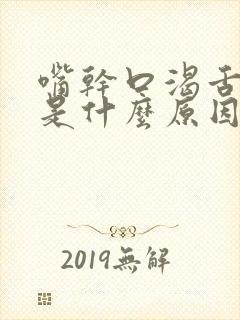 嘴幹口渴舌
是什麼原因
2019無解